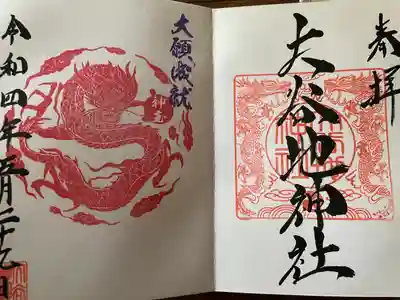 奉拝
大谷地神社
大願成就
神竜
令和四年五月二十九日